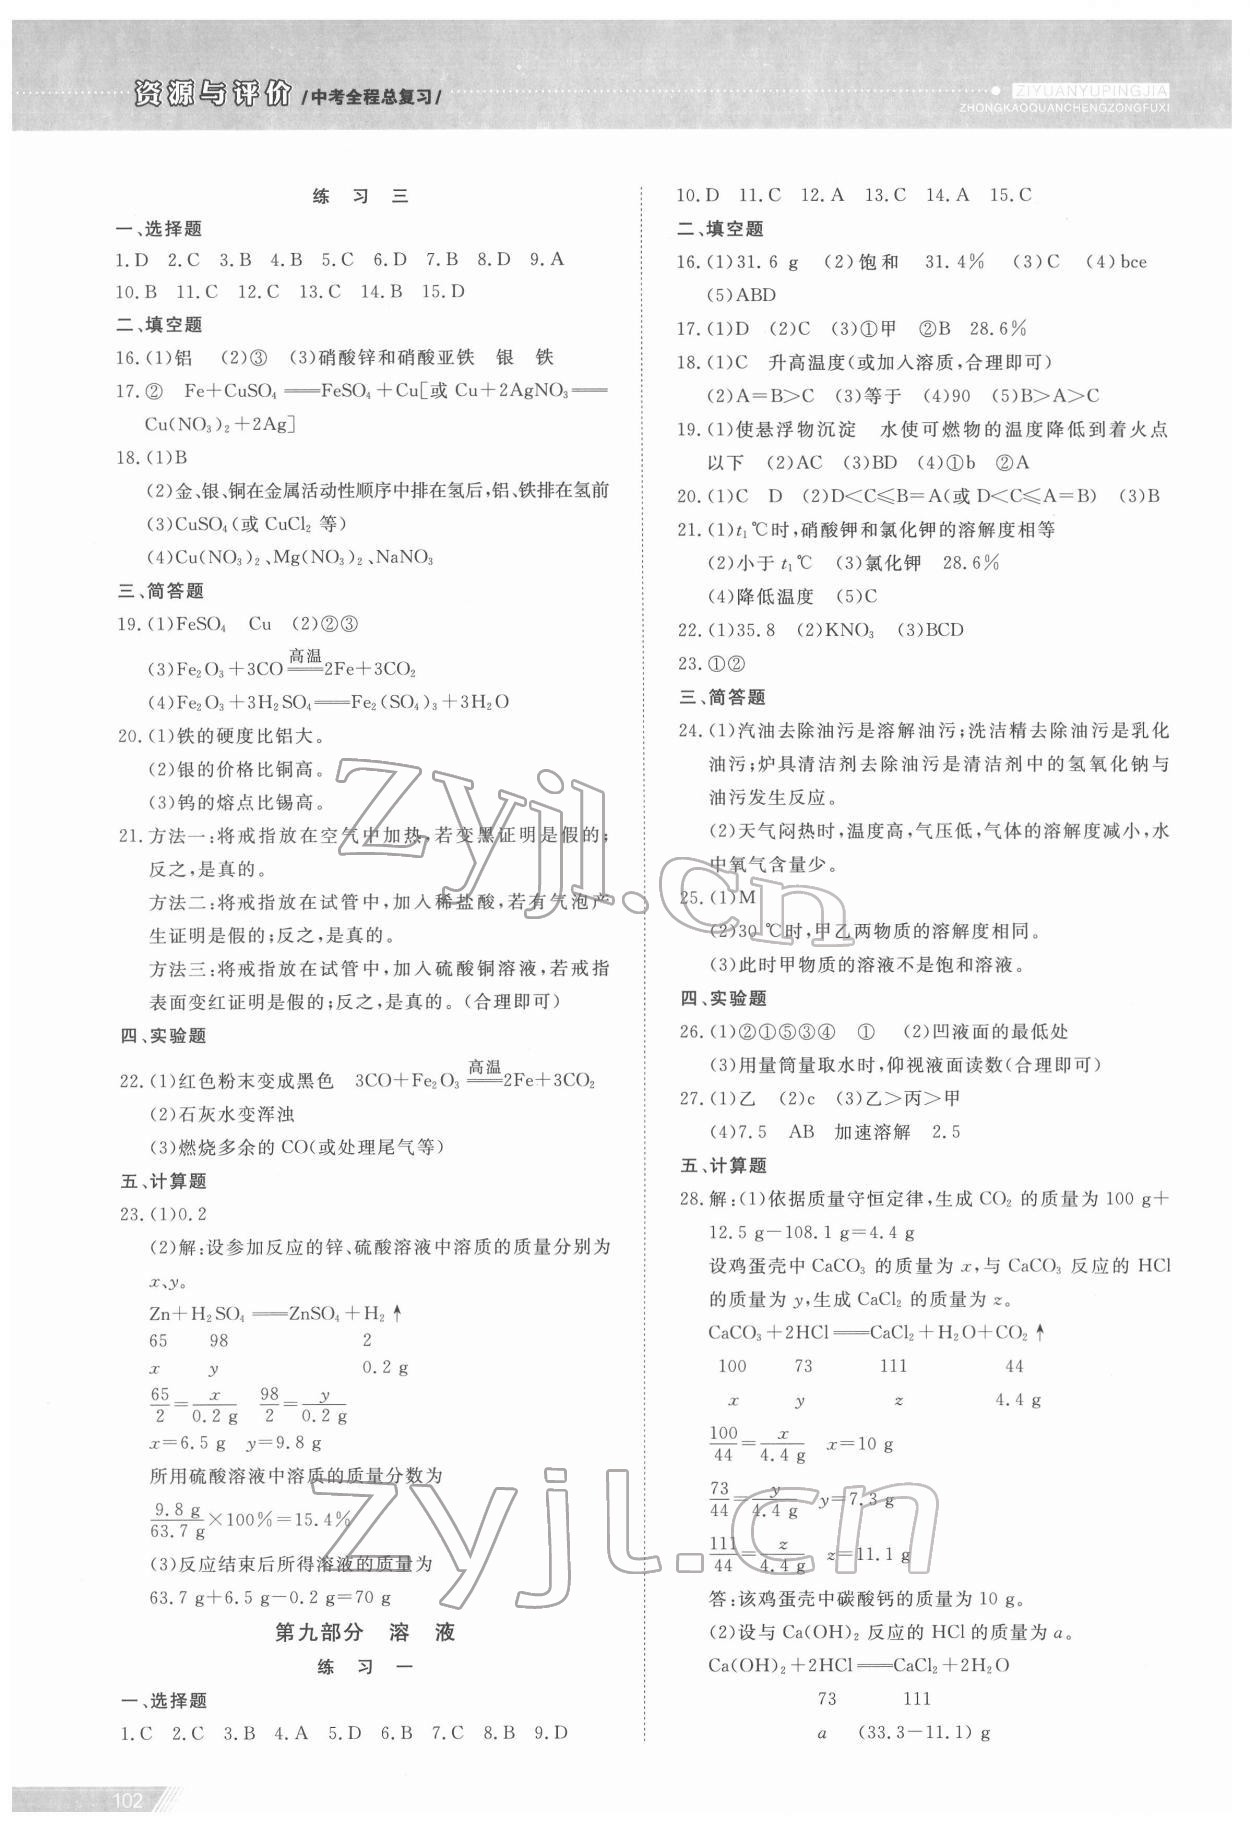 资源与评价 /中考全程总复习/
ZIYUANYUPINGJIA
ZHONGKAOQUANCHENGZONGFUXI
练 习 三
一、选择题
1.D 2.C 3.B 4.B 5.C 6.D 7.B 8.D 9.A
10.B 11.C 12.C 13.C 14.B 15.D
二、填空题
16.(1)铝 (2)③ (3)硝酸锌和硝酸亚铁 银 铁
17.② Fe+CuSO₄══FeSO₄+Cu[或 Cu+2AgNO₃══
Cu(NO₃)₂+2Ag]
18.(1)B
(2)金、银、铜在金属活动性顺序中排在氢后,铝、铁排在氢前
(3)CuSO₄(或 CuCl₂ 等)
(4)Cu(NO₃)₂、Mg(NO₃)₂、NaNO₃
三、简答题
19.(1)FeSO₄ Cu (2)②③
(3)Fe₂O₃+3CO 高温══ 2Fe+3CO₂
(4)Fe₂O₃+3H₂SO₄══Fe₂(SO₄)₃+3H₂O
20.(1)铁的硬度比铝大。
(2)银的价格比铜高。
(3)钨的熔点比锡高。
21.方法一:将戒指放在空气中加热,若变黑证明是假的;
反之,是真的。
方法二:将戒指放在试管中,加入稀盐酸,若有气泡产
生证明是假的;反之,是真的。
方法三:将戒指放在试管中,加入硫酸铜溶液,若戒指
表面变红证明是假的;反之,是真的。(合理即可)
四、实验题
22.(1)红色粉末变成黑色 3CO+Fe₂O₃ 高温══ 2Fe+3CO₂
(2)石灰水变浑浊
(3)燃烧多余的 CO(或处理尾气等)
五、计算题
23.(1)0.2
(2)解:设参加反应的锌、硫酸溶液中溶质的质量分别为
x、y。
Zn+H₂SO₄══ZnSO₄+H₂↑
65 98 2
x y 0.2 g
65/2=x/0.2 g 98/2=y/0.2 g
x=6.5 g y=9.8 g
所用硫酸溶液中溶质的质量分数为
9.8 g/63.7 g×100%=15.4%
(3)反应结束后所得溶液的质量为
63.7 g+6.5 g-0.2 g=70 g
第九部分 溶 液
练 习 一
一、选择题
1.C 2.C 3.B 4.A 5.D 6.B 7.C 8.B 9.D
10.D 11.C 12.A 13.C 14.A 15.C
二、填空题
16.(1)31.6 g (2)饱和 31.4% (3)C (4)bce
(5)ABD
17.(1)D (2)C (3)①甲 ②B 28.6%
18.(1)C 升高温度(或加入溶质,合理即可)
(2)A=B>C (3)等于 (4)90 (5)B>A>C
19.(1)使悬浮物沉淀 水使可燃物的温度降低到着火点
以下 (2)AC (3)BD (4)①b ②A
20.(1)C D (2)D<C≤B=A(或 D<C≤A=B) (3)B
21.(1)t₁℃时,硝酸钾和氯化钾的溶解度相等
(2)小于 t₁℃ (3)氯化钾 28.6%
(4)降低温度 (5)C
22.(1)35.8 (2)KNO₃ (3)BCD
23.①②
三、简答题
24.(1)汽油去除油污是溶解油污;洗洁精去除油污是乳化
油污;炉具清洁剂去除油污是清洁剂中的氢氧化钠与
油污发生反应。
(2)天气闷热时,温度高,气压低,气体的溶解度减小,水
中氧气含量少。
25.(1)M
(2)30 ℃时,甲乙两物质的溶解度相同。
(3)此时甲物质的溶液不是饱和溶液。
四、实验题
26.(1)②①⑤③④ ① (2)凹液面的最低处
(3)用量筒量取水时,仰视液面读数(合理即可)
27.(1)乙 (2)c (3)乙>丙>甲
(4)7.5 AB 加速溶解 2.5
五、计算题
28.解:(1)依据质量守恒定律,生成 CO₂ 的质量为 100 g+
12.5 g-108.1 g=4.4 g
设鸡蛋壳中 CaCO₃ 的质量为 x,与 CaCO₃ 反应的 HCl
的质量为 y,生成 CaCl₂ 的质量为 z。
CaCO₃+2HCl══CaCl₂+H₂O+CO₂↑
100 73 111 44
x y z 4.4 g
100/44=x/4.4 g x=10 g
73/44=y/4.4 g y=7.3 g
111/44=z/4.4 g z=11.1 g
答:该鸡蛋壳中碳酸钙的质量为 10 g。
(2)设与 Ca(OH)₂ 反应的 HCl 的质量为 a。
Ca(OH)₂+2HCl══CaCl₂+2H₂O
73 111
a (33.3-11.1) g
102
zyjl.cn
zyjl.cn